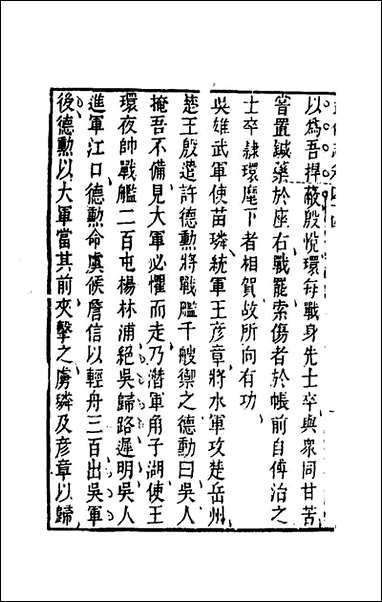 以為吾捍蔽殷悅環每戰身先士卒與衆同甘苦
甞置鍼藥於座右戰罷索傷者於帳前自傅治之
士卒隷環麾下者相賀故所向有功
吳雄武軍使苗璘統軍王彦章將水軍攻楚岳州
楚王殷遣許德勲將戰艦千艘禦之德勲曰吳人
掩吾不備見大軍必懼而走乃潛軍角子湖使王
環夜帥戰艦二百屯楊林浦絕吳歸路遲明吳人
進軍江口德勲命虞候詹信以輕舟三百出吳軍
後德勲以大軍當其前夾擊之虜璘及彦章以歸